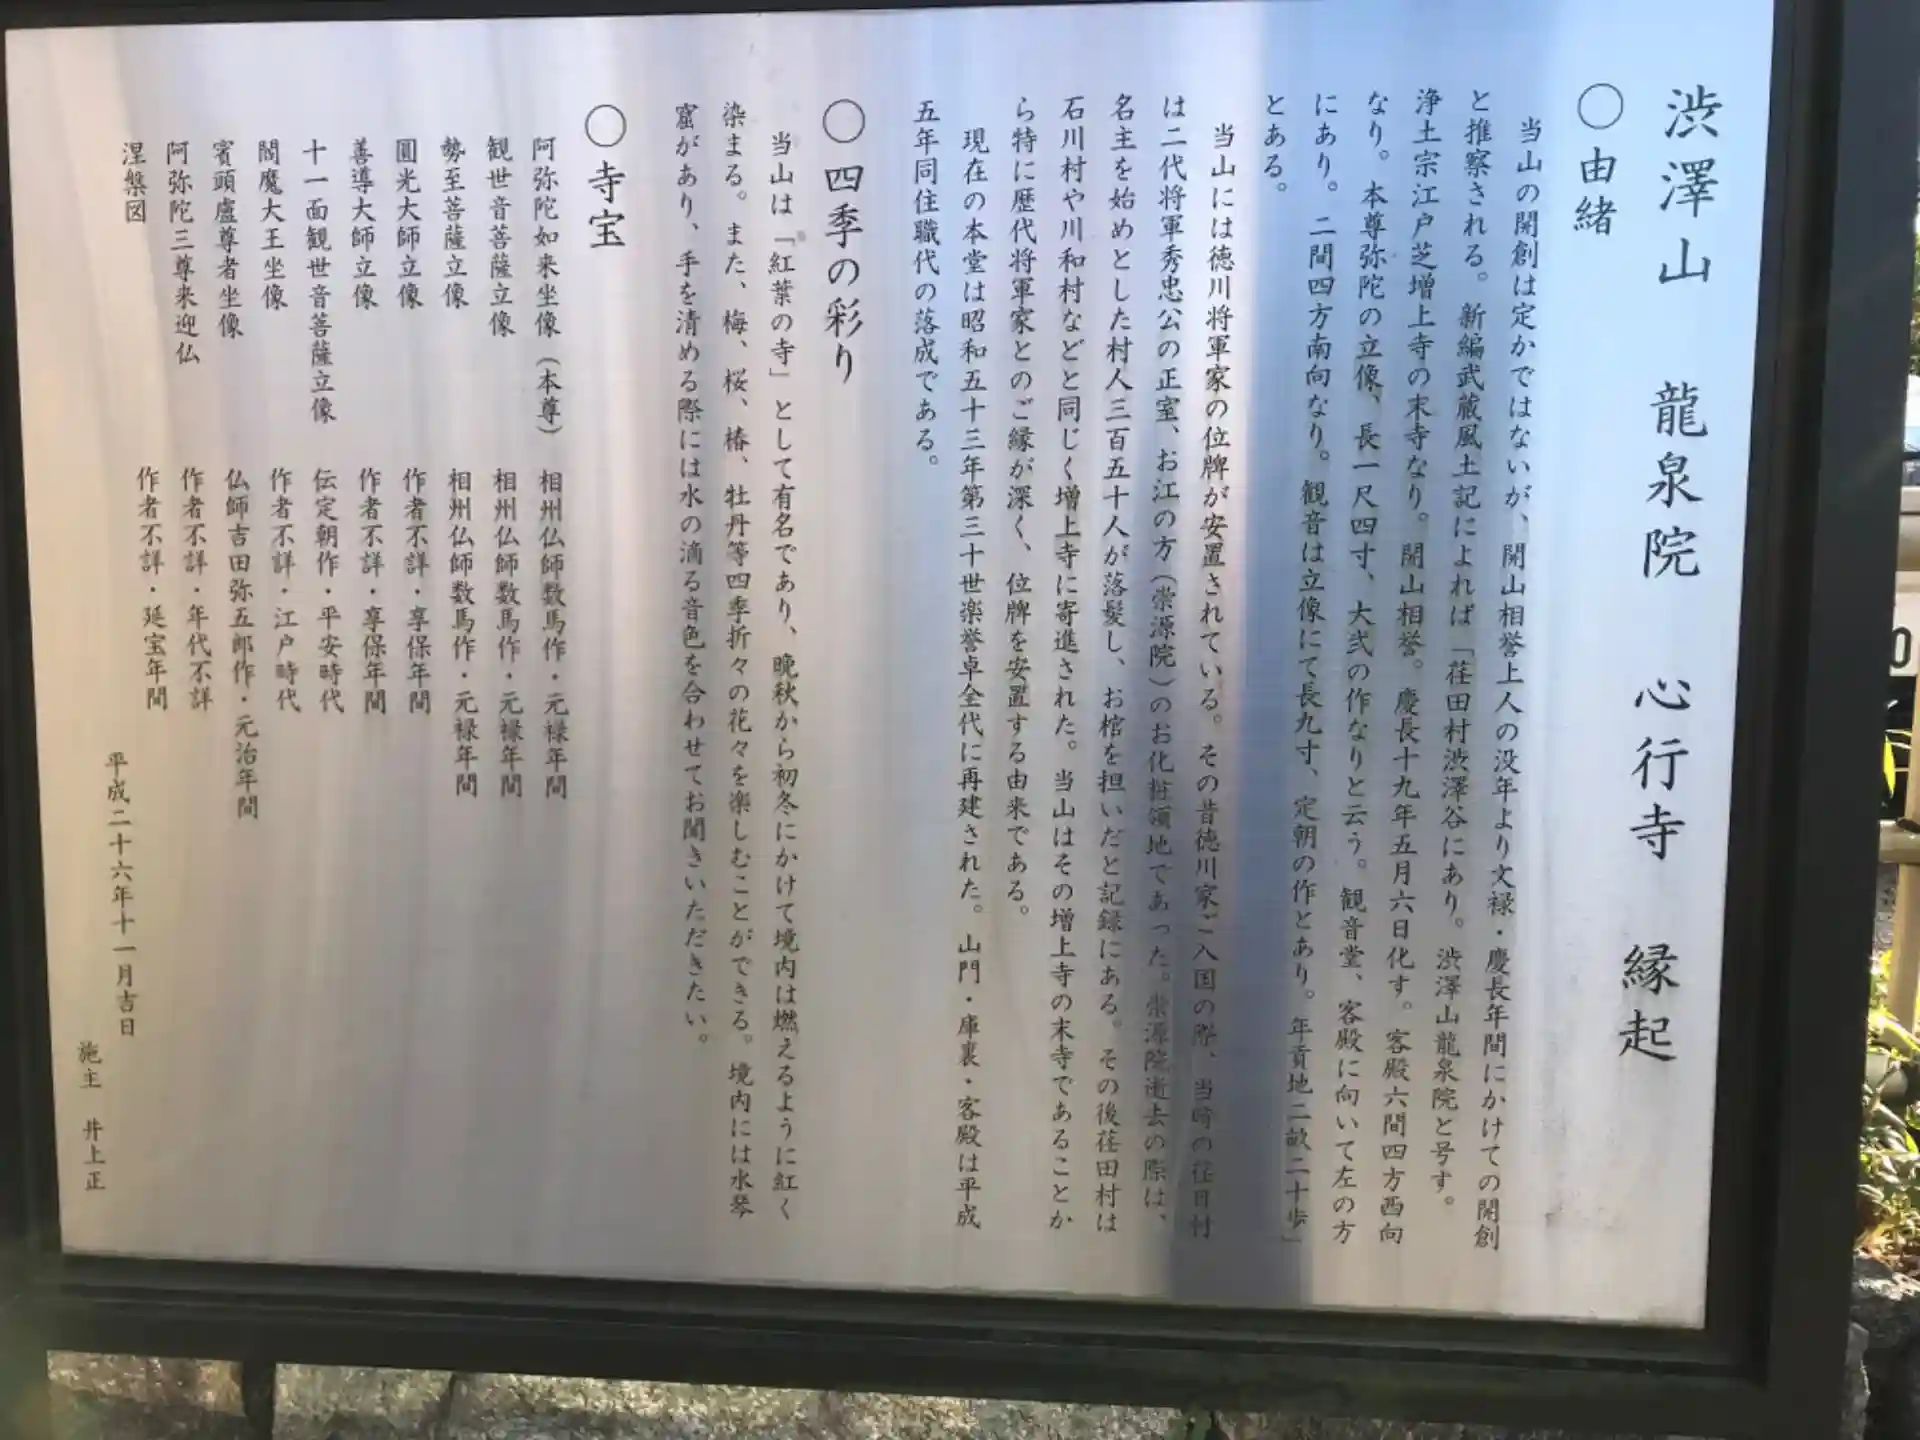 渋澤山 龍泉院 心行寺 縁起
〇由緒
当山の開創は定かではないが、開山相誉上人の没年より文禄・慶長年間にかけての開創
と推察される。新編武蔵風土記によれば「荏田村渋澤谷にあり。渋澤山龍泉院と号す。
浄土宗江戸芝増上寺の末寺なり。開山相誉。慶長十九年五月六日化す。客殿六間四方西向
なり。本尊弥陀の立像、長一尺四寸、大弐の作なりと云う。観音堂、客殿に向いて左の方
にあり。二間四方南向なり。観音は立像にて長九寸、定朝の作とあり。年貢地二畝二十歩」
とある。
当山には徳川将軍家の位牌が安置されている。その昔徳川家ご入国の際、当時の荏田村
は二代将軍秀忠公の正室、お江の方（崇源院）のお化粧領地であった。崇源院逝去の際は、
名主を始めとした村人三百五十人が落髪し、お棺を担いだと記録にある。その後荏田村は
石川村や川和村などと同じく増上寺に寄進された。当山はその増上寺の末寺であることか
ら特に歴代将軍家とのご縁が深く、位牌を安置する由来である。
現在の本堂は昭和五十三年第三十世楽誉卓全代に再建された。山門・庫裏・客殿は平成
五年同住職代の落成である。
〇四季の彩り
当山は「紅葉の寺」として有名であり、晩秋から初冬にかけて境内は燃えるように紅く
染まる。また、梅、桜、椿、牡丹等四季折々の花々を楽しむことができる。境内には水琴
窟があり、手を清める際には水の滴る音色を合わせてお聞きいただきたい。
〇寺宝
阿弥陀如来坐像（本尊） 相州仏師数馬作・元禄年間
観世音菩薩立像 相州仏師数馬作・元禄年間
勢至菩薩立像 相州仏師数馬作・元禄年間
圓光大師立像 作者不詳・享保年間
善導大師立像 作者不詳・享保年間
十一面観世音菩薩立像 伝定朝作・平安時代
閻魔大王坐像 作者不詳・江戸時代
賓頭盧尊者坐像 仏師吉田弥五郎作・元治年間
阿弥陀三尊来迎仏 作者不詳・年代不詳
涅槃図 作者不詳・延宝年間
平成二十六年十一月吉日
施主 井上正